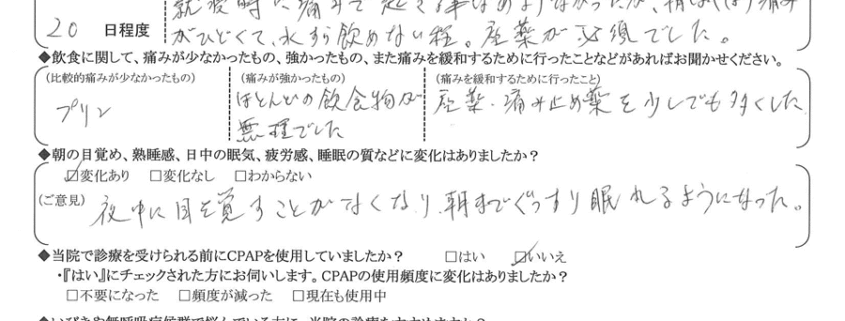 就寝時に痛みで起きる事はあまりなかったが、朝
がひどくて、水すら飲めない程。座薬が必須でした。
20 日程度
◆飲食に関して、痛みが少なかったもの、強かったもの、また痛みを緩和するために行ったことなどがあればお聞かせください。
(比較的痛みが少なかったもの) (痛みが強かったもの) (痛みを緩和するために行ったこと)
プリン
ほとんどの飲食物が
無理でした
座薬・痛み止め薬を少しでも多くした
◆朝の目覚め、熟睡感、日中の眠気、疲労感、睡眠の質などに変化はありましたか？
☑変化あり □変化なし □わからない
(ご意見) 夜中に目を覚すことがなくなり、朝までぐっすり眠れるようになった。
◆当院で診療を受けられる前にCPAPを使用していましたか？ □はい ☑いいえ
・『はい』にチェックされた方にお伺いします。CPAPの使用頻度に変化はありましたか？
□不要になった □頻度が減った □現在も使用中